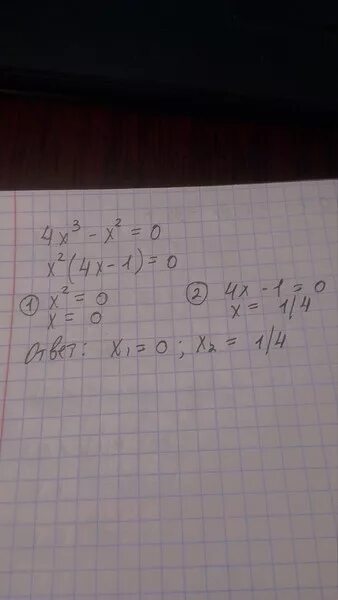 4x³ - x² = 0
x²(4x-1) = 0
① x² = 0
x = 0
② 4x - 1 = 0
x = 1/4
Ответ: x₁ = 0 ; x₂ = 1/4